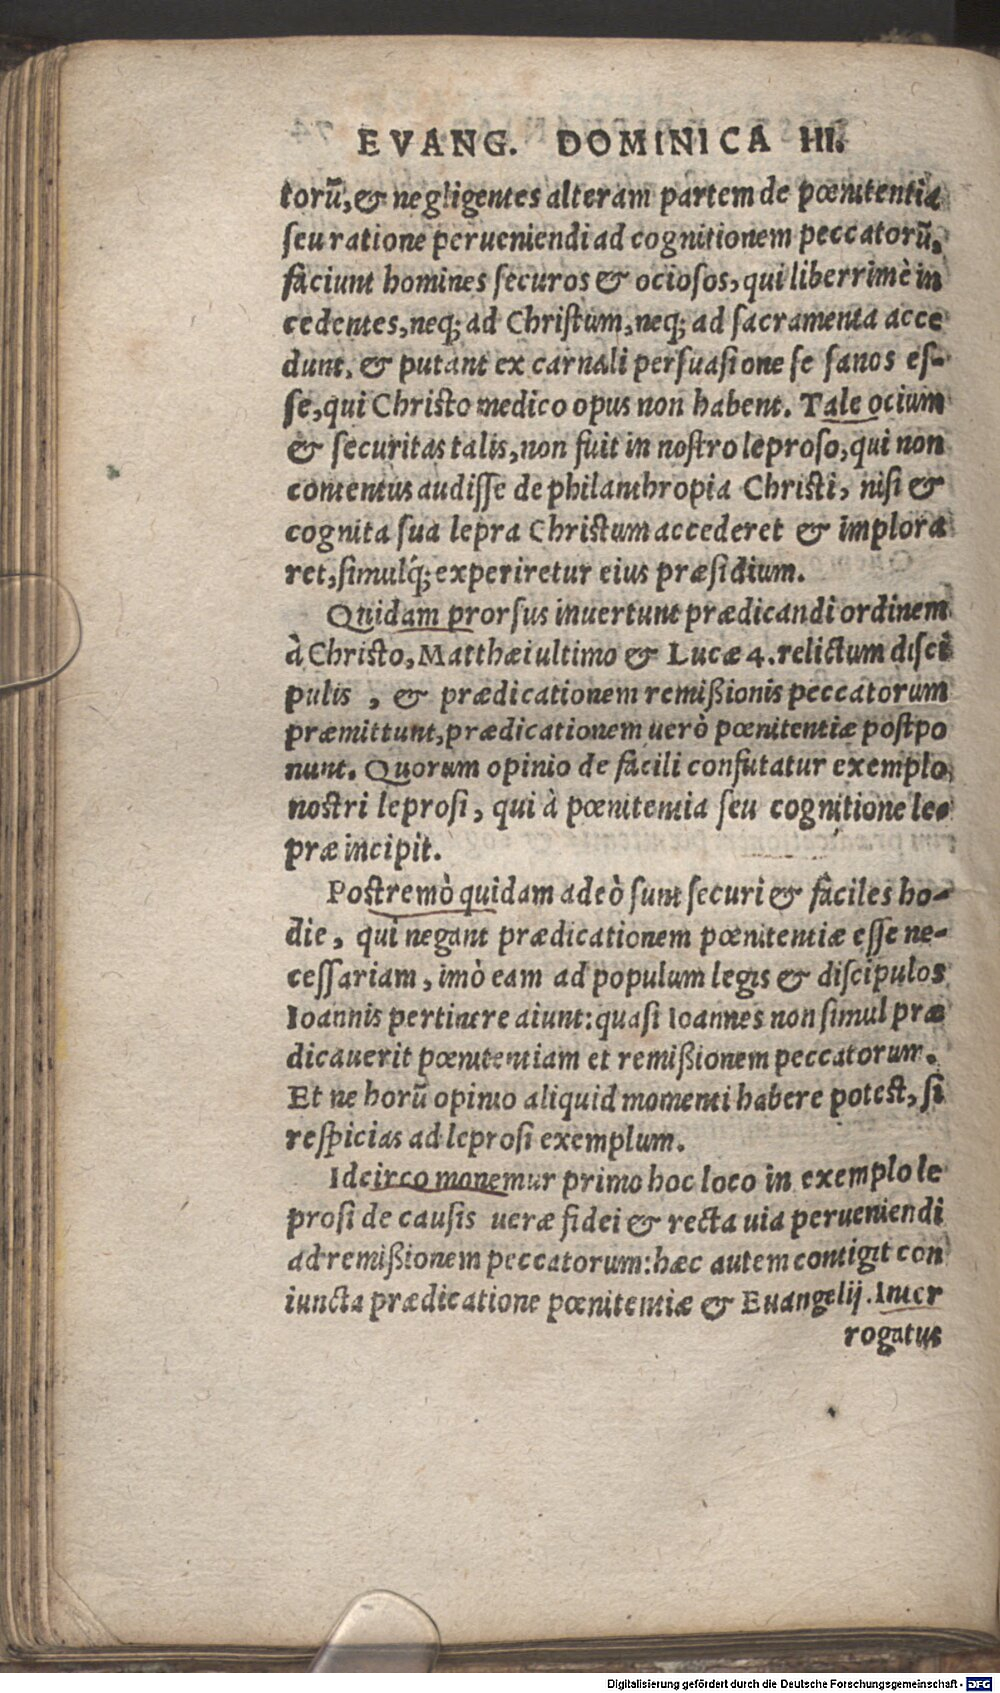 EVANG. DOMINICA III.
torū, & negligentes alteram partem de pœnitentia
seu ratione perueniendi ad cognitionem peccatorū,
faciunt homines securos & ociosos, qui liberrimè in
cedentes, neq; ad Christum, neq; ad sacramenta acce
dunt, & putant ex carnali persuasione se sanos es-
se, qui Christo medico opus non habent. Tale ocium
& securitas talis, non fuit in nostro leproso, qui non
contentus audisse de philanthropia Christi, nisi &
cognita sua lepra Christum accederet & implora
ret, simulq́; experiretur eius præsidium.
Quidam prorsus inuertunt prædicandi ordinem
à Christo, Matthæi ultimo & Lucæ 4. relictum disci
pulis , & prædicationem remißionis peccatorum
præmittunt, prædicationem uerò pœnitentiæ postpo
nunt. Quorum opinio de facili confutatur exemplo
nostri leprosi, qui à pœnitentia seu cognitione le-
præ incipit.
Postremò quidam adeò sunt securi & faciles ho-
die, qui negant prædicationem pœnitentiæ esse ne-
cessariam, imò eam ad populum legis & discipulos
Ioannis pertinere aiunt: quasi Ioannes non simul præ
dicauerit pœnitentiam et remißionem peccatorum.
Et ne horū opinio aliquid momenti habere potest, si
respicias ad leprosi exemplum.
Idcirco monemur primo hoc loco in exemplo le
prosi de causis ueræ fidei & recta uia perueniendi
ad remißionem peccatorum: hæc autem contigit con
iuncta prædicatione pœnitentiæ & Euangelij. Inter
rogatus
Digitalisierung gefördert durch die Deutsche Forschungsgemeinschaft - DFG